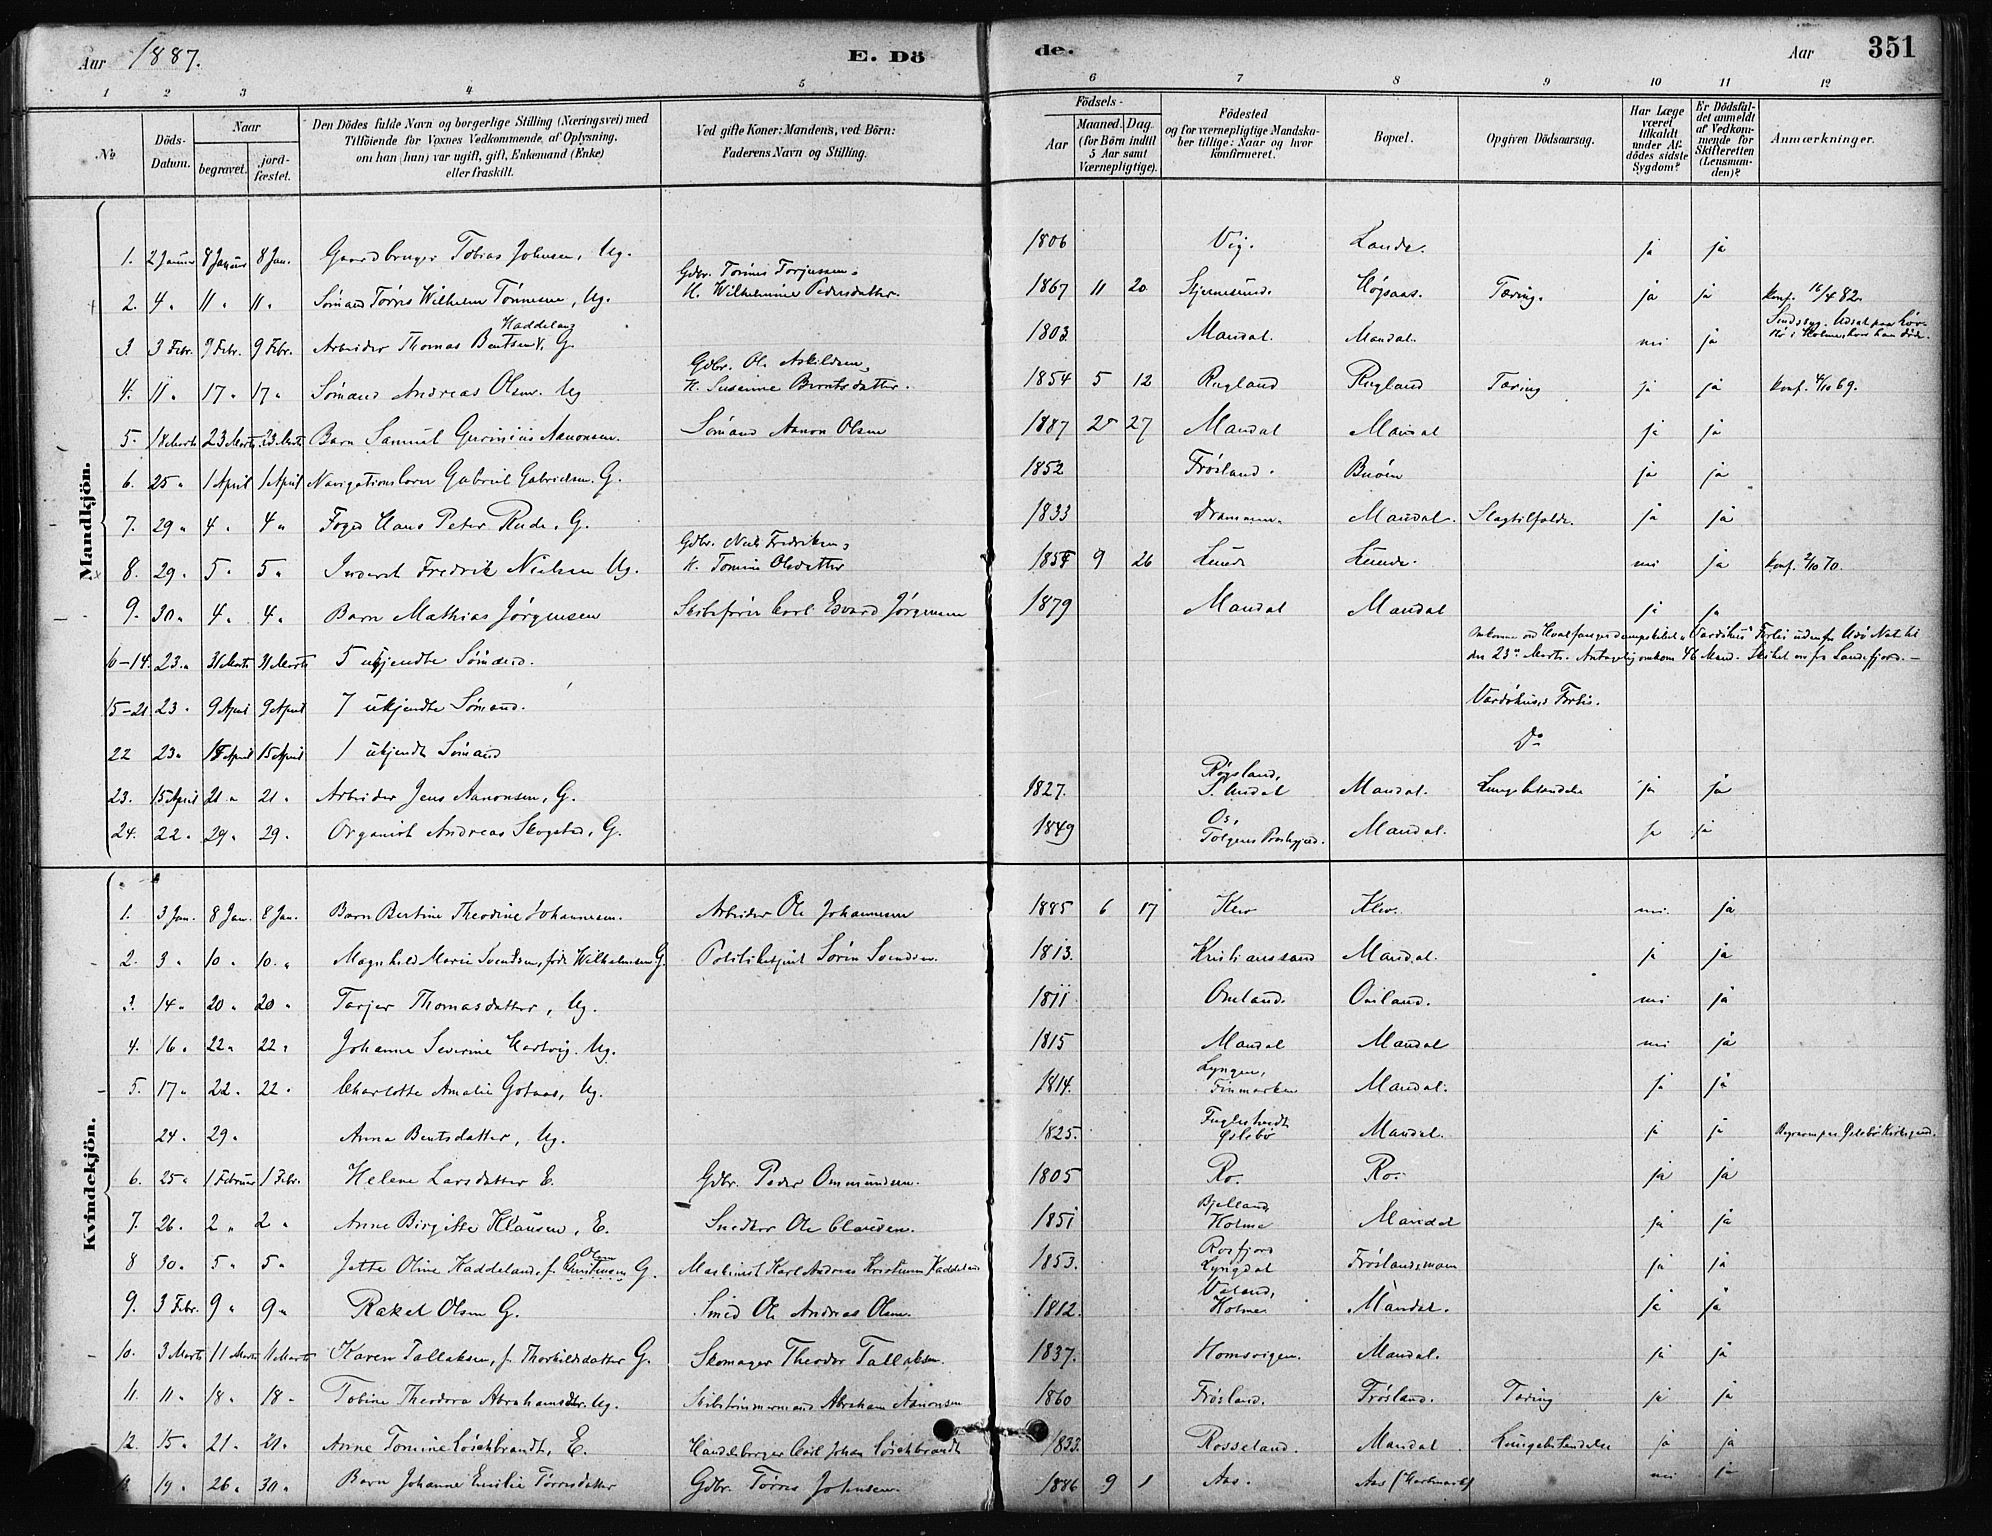 Aar 1887. E. Dö de. Aar 351
1 2 3 4 5 6 7 8 9 10 11 12
No
Döds-Datum.
Naar
begravet.
jord-fæstet.
Den Dödes fulde Navn og borgerlige Stilling (Næringsvei) med
Tilföiende for Voxnes Vedkommende, af Oplysning,
om han (hun) var ugift, gift, Enkemand (Enke)
eller fraskilt.
Ved gifte Koner: Mandens, ved Börn:
Faderens Navn og Stilling.
Födsels-
Aar
Maaned. Dag.
(for Börn indtil
5 Aar samt
Værnepligtige).
Födested
og for værnepligtige Mandska-
ber tillige: Naar og hvor
konfirmeret.
Bopæl.
Opgiven Dödsaarsag.
Har Læge
været
tilkaldt
under Af-
dödes sidste
Sygdom?
Er Dödsfal-
det anmeldt
af Vedkom-
mende for
Skifteretten
(Lensman-
den)?
Anmærkninger.
Mandkjön.
1. 2 Januar 8 Januar 8 Jan. Gaardbruger Tobias Johnsen, Ug. 1806 Vig. Lande. ja ja
Gdbr. Tørres Torjussen,
2. 4 " 11 " 11 " Sømand Tørres Wilhelm Tønnesen, Ug. H. Wilhelmine Pedersdatter. 1867 11 20 Stjernesund. Høgsaas. Tæring. ja ja konf. 16/4 82.
Haddeland
3. 3 Febr. 9 Febr. 9 Febr. Arbeider Thomas Bentsen, G. 1803 Mandal. Mandal. nei ja
Gdbr. Ole Askildsen,
4. 11 " 17 " 17 " Sømand Andreas Olsen. Ug H. Susanne Berntsdatter. 1854 5 12 Rugland Rugland Tæring ja ja konf. 4/10 69.
5. 18 Marts 23 Marts 23 Marts Barn Samuel Guruius Aanonsen. Sømand Aanon Olsen 1887 2 27 Mandal Mandal ja ja
6. 25 " 1 April 1 April Navigationslærer Gabriel Gabrielsen. G. 1852 Frøsland. Buøen ja ja
7. 29 " 4 " 4 " Foged Hans Peter Rude, G. 1833 Drammen. Mandal. Slagtilfælde. ja ja
Gdbr. Niels Fredriksen,
8. 29 " 5 " 5 " Inderst Fredrik Nielsen Ug. H. Tomine Olsdatter 1855 9 26 Lunde Lunde. nei ja konf. 2/10 70.
9. 30 " 4 " 4 " Barn Mathias Jørgensen Skibsfører Carl Edvard Jørgensen 1879 Mandal Mandal ja ja
6–14. 23 " 31 Marts 31 Marts 5 ukjendte Sømænd. Omkomne ved Hvalfangerdampskibet "Vardöhus" Forlis udenfor Udø Nat til
den 23de Marts. Antagelig omkom 46 Mand. Skibet var fra Sandefjord. —
15–21 23 " 9 April 9 April 7 ukjendte Sømænd. Vardöhus's Forlis.
22 23 " 15 April 15 April 1 ukjendt Sømand Do
23. 15 April 21 " 21 " Arbeider Jens Aanonsen, G. 1827. Røgsland, S. Undal Mandal. Lungebetændelse ja ja
24. 22 " 29 " 29 " Organist Andreas Skogstad, G. 1849 Os, Tolgens Præstegjeld. Mandal. ja ja
Kvindekjön.
1. 3 Jan. 8 Jan. 8 Jan. Barn Bertine Theodine Johannesen. Arbeider Ole Johannesen 1885 6 17 Klev Klev. nei. ja
2. 3 " 10 " 10. " Magnhild Marie Svendsen, født Wilhelmsen G. Politibetjent Søren Svendsen. 1813. Kristianssand Mandal. ja ja
3. 14 " 20 " 20 " Tarjer Thomasdatter, Ug. 1811 Omland. Omland. nei ja
4. 16 " 22 " 22 " Johanne Severine Hartvig. Ug. 1815 Mandal Mandal nei ja
5. 17 " 22 " 22 " Charlotte Amalie Gotaas, Ug. 1814. Lyngen, Finmarken Mandal. ja ja
24. 29 " Anna Bentsdatter, Ug. 1825. Fuglestvedt Øslebø Mandal. ja ja
6. 25 " 1 Februar 1 Febr. Helene Larsdatter E. Gdbr. Peder Ommundsen. 1805 Ro. Ro. ja ja
7. 26. 2 " 2 " Anne Birgitte Klausen, E. Snedker Ole Clausen. 1851 Bjelland, Holme Mandal ja ja
8 30 " 5 " 5 " Jette Oline Haddeland, f. Christensen Olsen G. Maskinist Karl Andreas Kristensen Haddeland 1853. Rosfjord Lyngdal Frøslandsmoen ja ja
9. 3 Febr. 9 " 9 " Rakel Olsen G. Smed Ole Andreas Olsen. 1812. Valand, Holme Mandal. ja ja
10. 3 Marts 11 Marts 11 Marts Karen Tallaksen, f. Thorkildsdatter G. Skomager Theodor Tallaksen. 1837. Homsvigen. Mandal. ja ja
11. 11 " 18 " 18 " Tobine Theodora Abrahamsdtr. Ug. Skibstømmermand Abraham Aanonsen 1860 Frøsland. Frøsland. Tæring ja ja
12. 15 " 21 " 21 " Anne Tomine Löschbrandt, E. Handelsborger Carl Johan Löschbrandt 1833. Rosseland. Mandal Lungebetændelse ja ja
13. 19 " 26 " 30 " Barn Johanne Emilie Tørresdatter Gdbr. Tørres Johnsen. 1886 9 1 Aas. Aas (Hartmark) nei ja